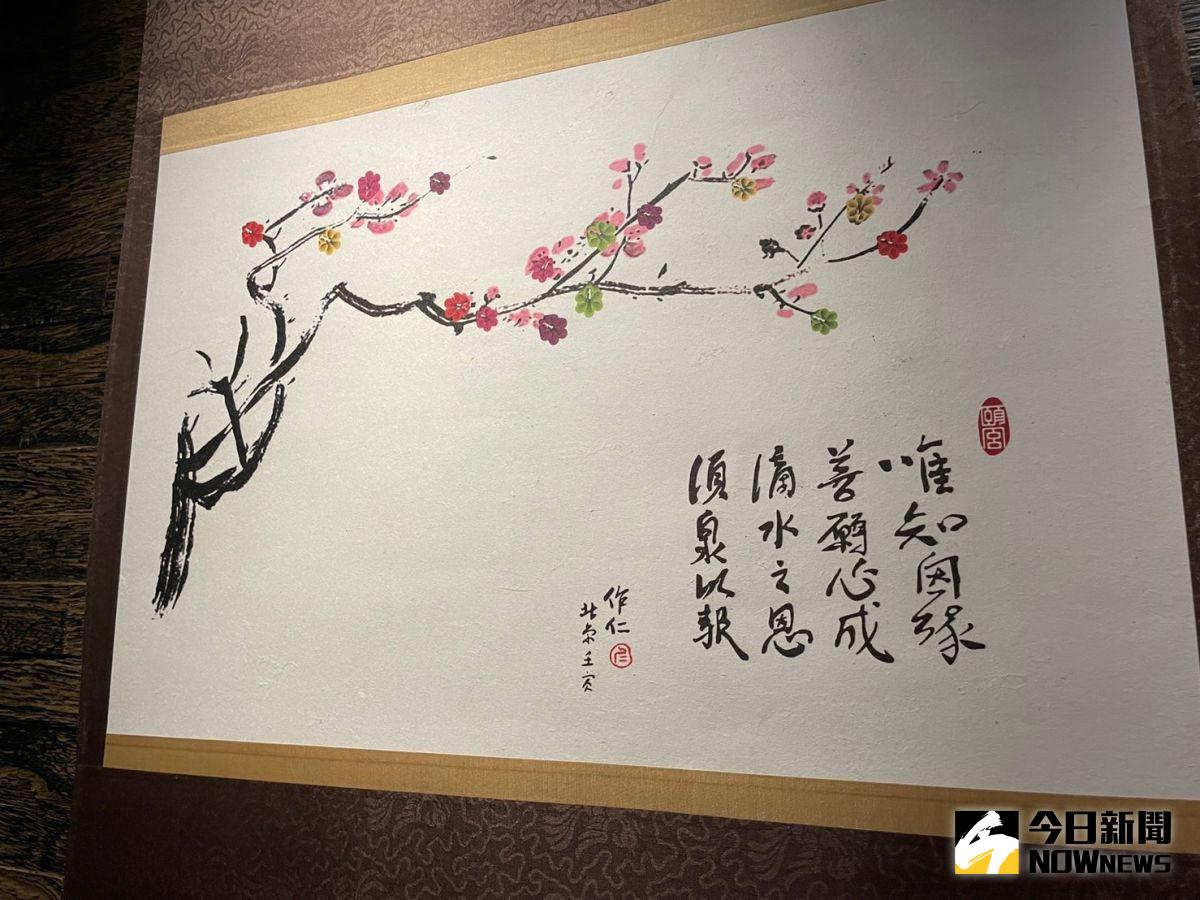 頤宮
唯知因緣
善願心成
滴水之恩
須泉以報
作仁
北京壬寅
今日新聞
NOWNEWS